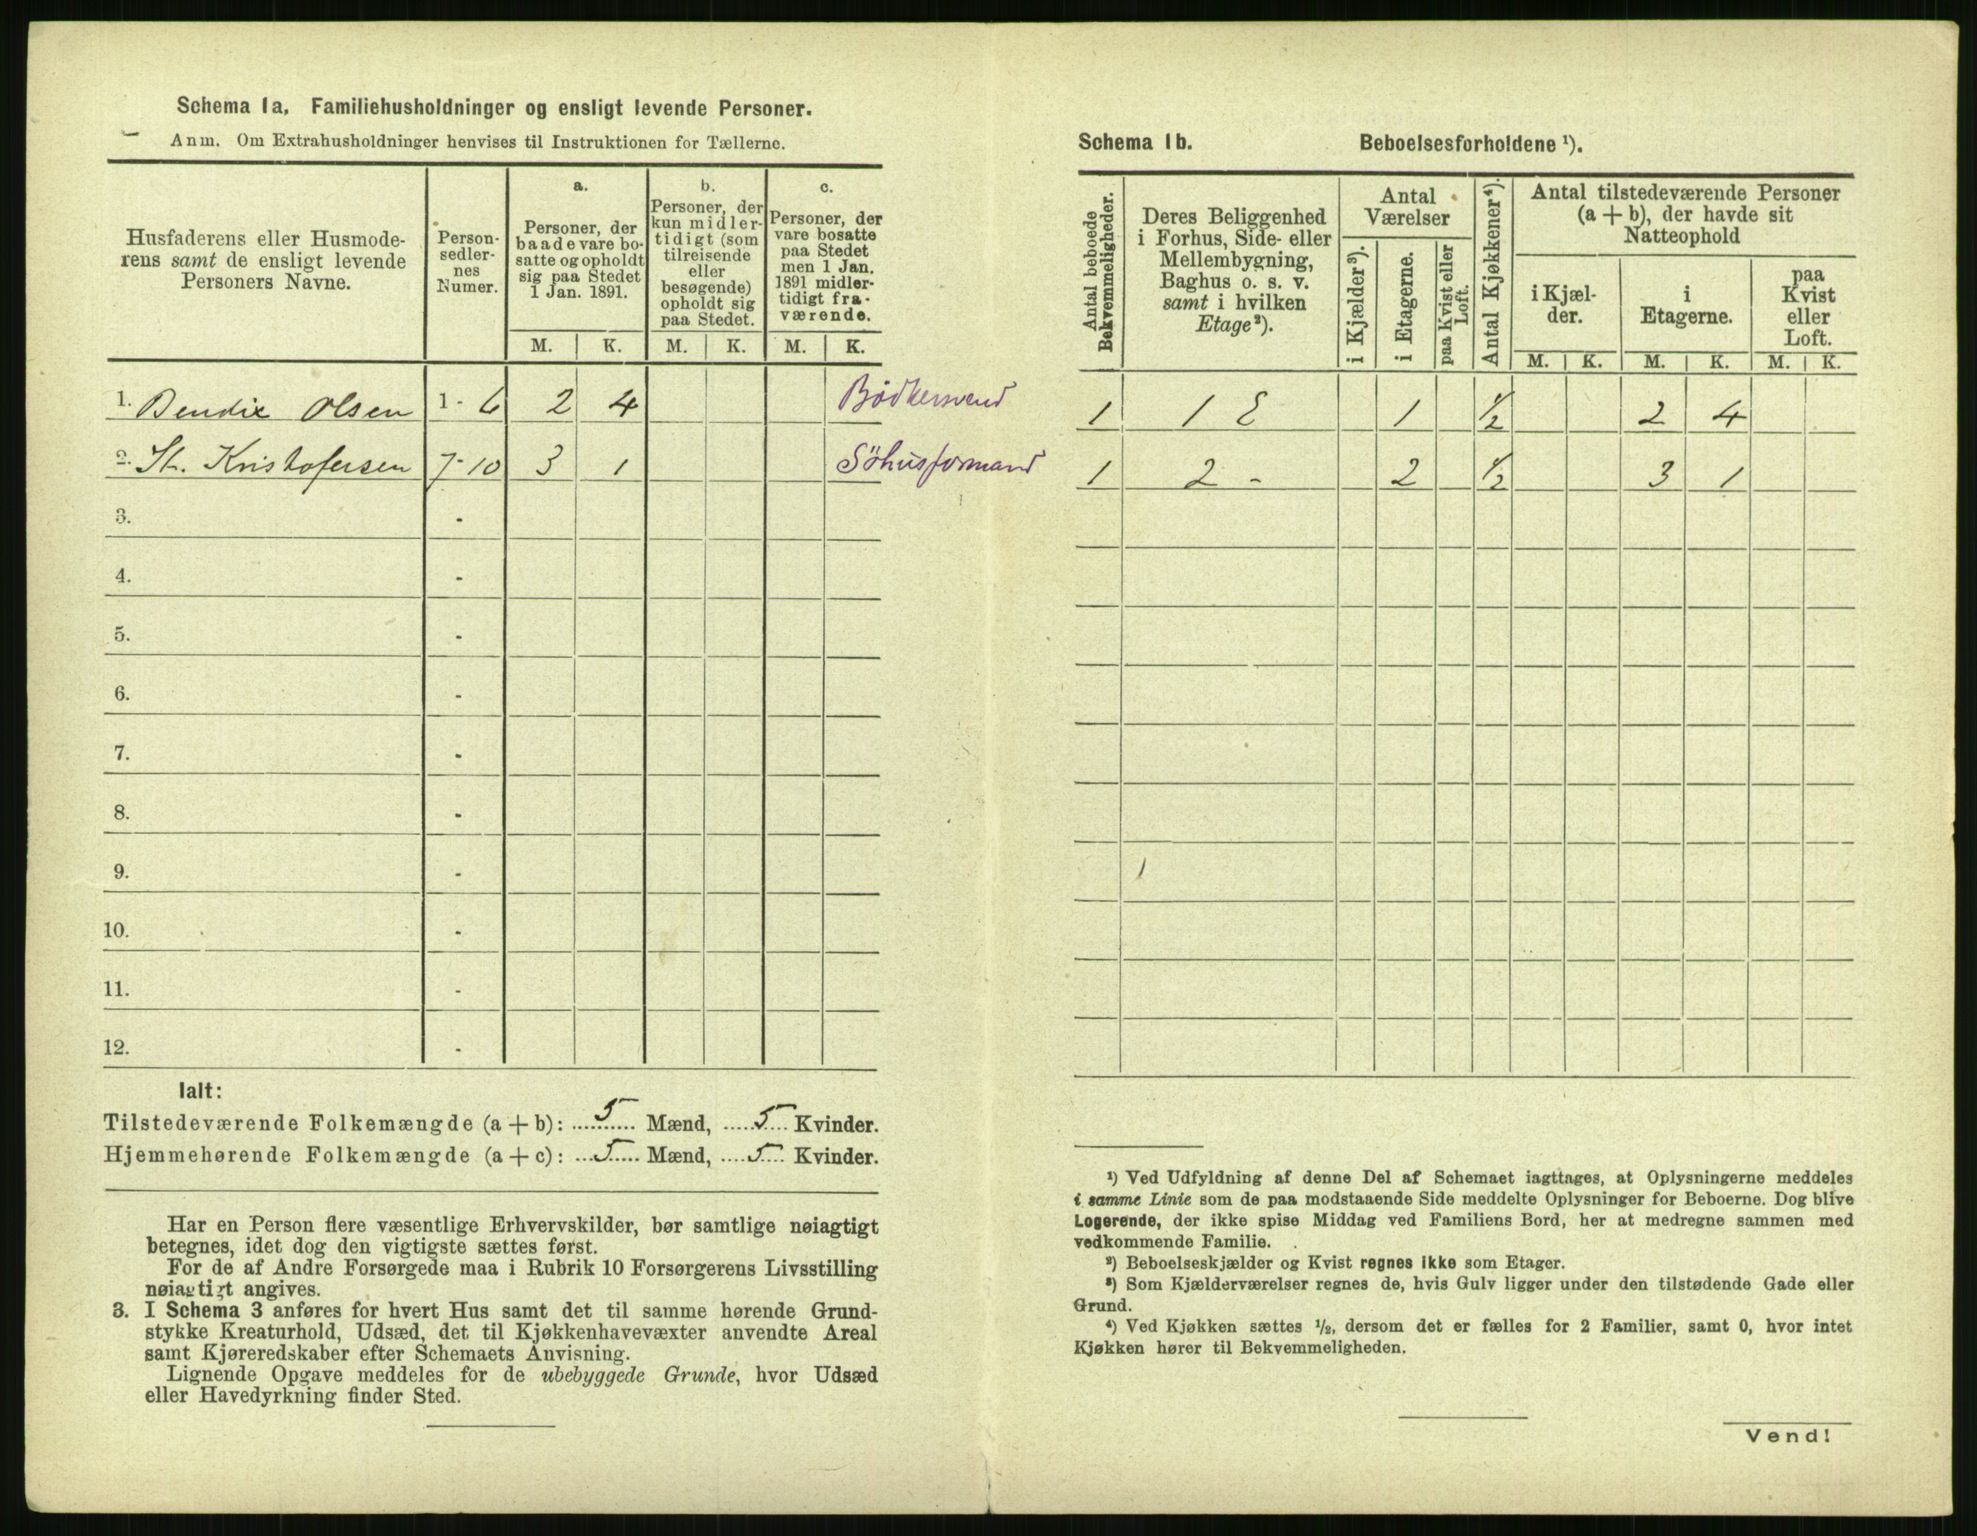 Schema 1a. Familiehusholdninger og ensligt levende Personer.
Anm. Om Extrahusholdninger henvises til Instruktionen for Tællerne.
Husfaderens eller Husmode-
rens samt de ensligt levende
Personers Navne.
Person-
sedler-
nes
Numer.
a.
Personer, der
baade vare bo-
satte og opholdt
sig paa Stedet
1 Jan. 1891.
b.
Personer, der
kun midler-
tidigt (som
tilreisende
eller
besøgende)
opholdt sig
paa Stedet.
c.
Personer, der
vare bosatte
paa Stedet
men 1 Jan.
1891 midler-
tidigt fra-
værende.
M. K. M. K. M. K.
1. Bendix Olsen 1 - 6 2 4 Bödkersvend
2. St. Kristofersen 7 - 10 3 1 Söhusformand
3. -
4. -
5. -
6. -
7. -
8. -
9. -
10. -
11. -
12. -
Ialt:
Tilstedeværende Folkemængde (a + b): 5 Mænd, 5 Kvinder.
Hjemmehørende Folkemængde (a + c): 5 Mænd, 5 Kvinder.
Har en Person flere væsentlige Erhvervskilder, bør samtlige nøiagtigt
betegnes, idet dog den vigtigste sættes først.
For de af Andre Forsørgede maa i Rubrik 10 Forsørgerens Livsstilling
nøiagtigt angives.
3. I Schema 3 anføres for hvert Hus samt det til samme hørende Grund-
stykke Kreaturhold, Udsæd, det til Kjøkkenhavevæxter anvendte Areal
samt Kjøreredskaber efter Schemaets Anvisning.
Lignende Opgave meddeles for de ubebyggede Grunde, hvor Udsæd
eller Havedyrkning finder Sted.
Schema 1b. Beboelsesforholdene ¹).
Antal beboede
Bekvemmeligheder.
Deres Beliggenhed
i Forhus, Side- eller
Mellembygning,
Baghus o. s. v.
samt i hvilken
Etage²).
Antal
Værelser
i Kjælder³).
i Etagerne.
paa Kvist eller
Loft.
Antal Kjøkkener⁴).
Antal tilstedeværende Personer
(a + b), der havde sit
Natteophold
i Kjæl-
der.
i
Etagerne.
paa
Kvist
eller
Loft.
M. K. M. K. M. K.
1 1 E 1 ½ 2 4
1 2 - 2 ½ 3 1
¹) Ved Udfyldning af denne Del af Schemaet iagttages, at Oplysningerne meddeles
i samme Linie som de paa modstaaende Side meddelte Oplysninger for Beboerne. Dog blive
Logerende, der ikke spise Middag ved Familiens Bord, her at medregne sammen med
vedkommende Familie.
²) Beboelseskjælder og Kvist regnes ikke som Etager.
³) Som Kjælderværelser regnes de, hvis Gulv ligger under den tilstødende Gade eller
Grund.
⁴) Ved Kjøkken sættes ½, dersom det er fælles for 2 Familier, samt 0, hvor intet
Kjøkken hører til Bekvemmeligheden.
Vend!